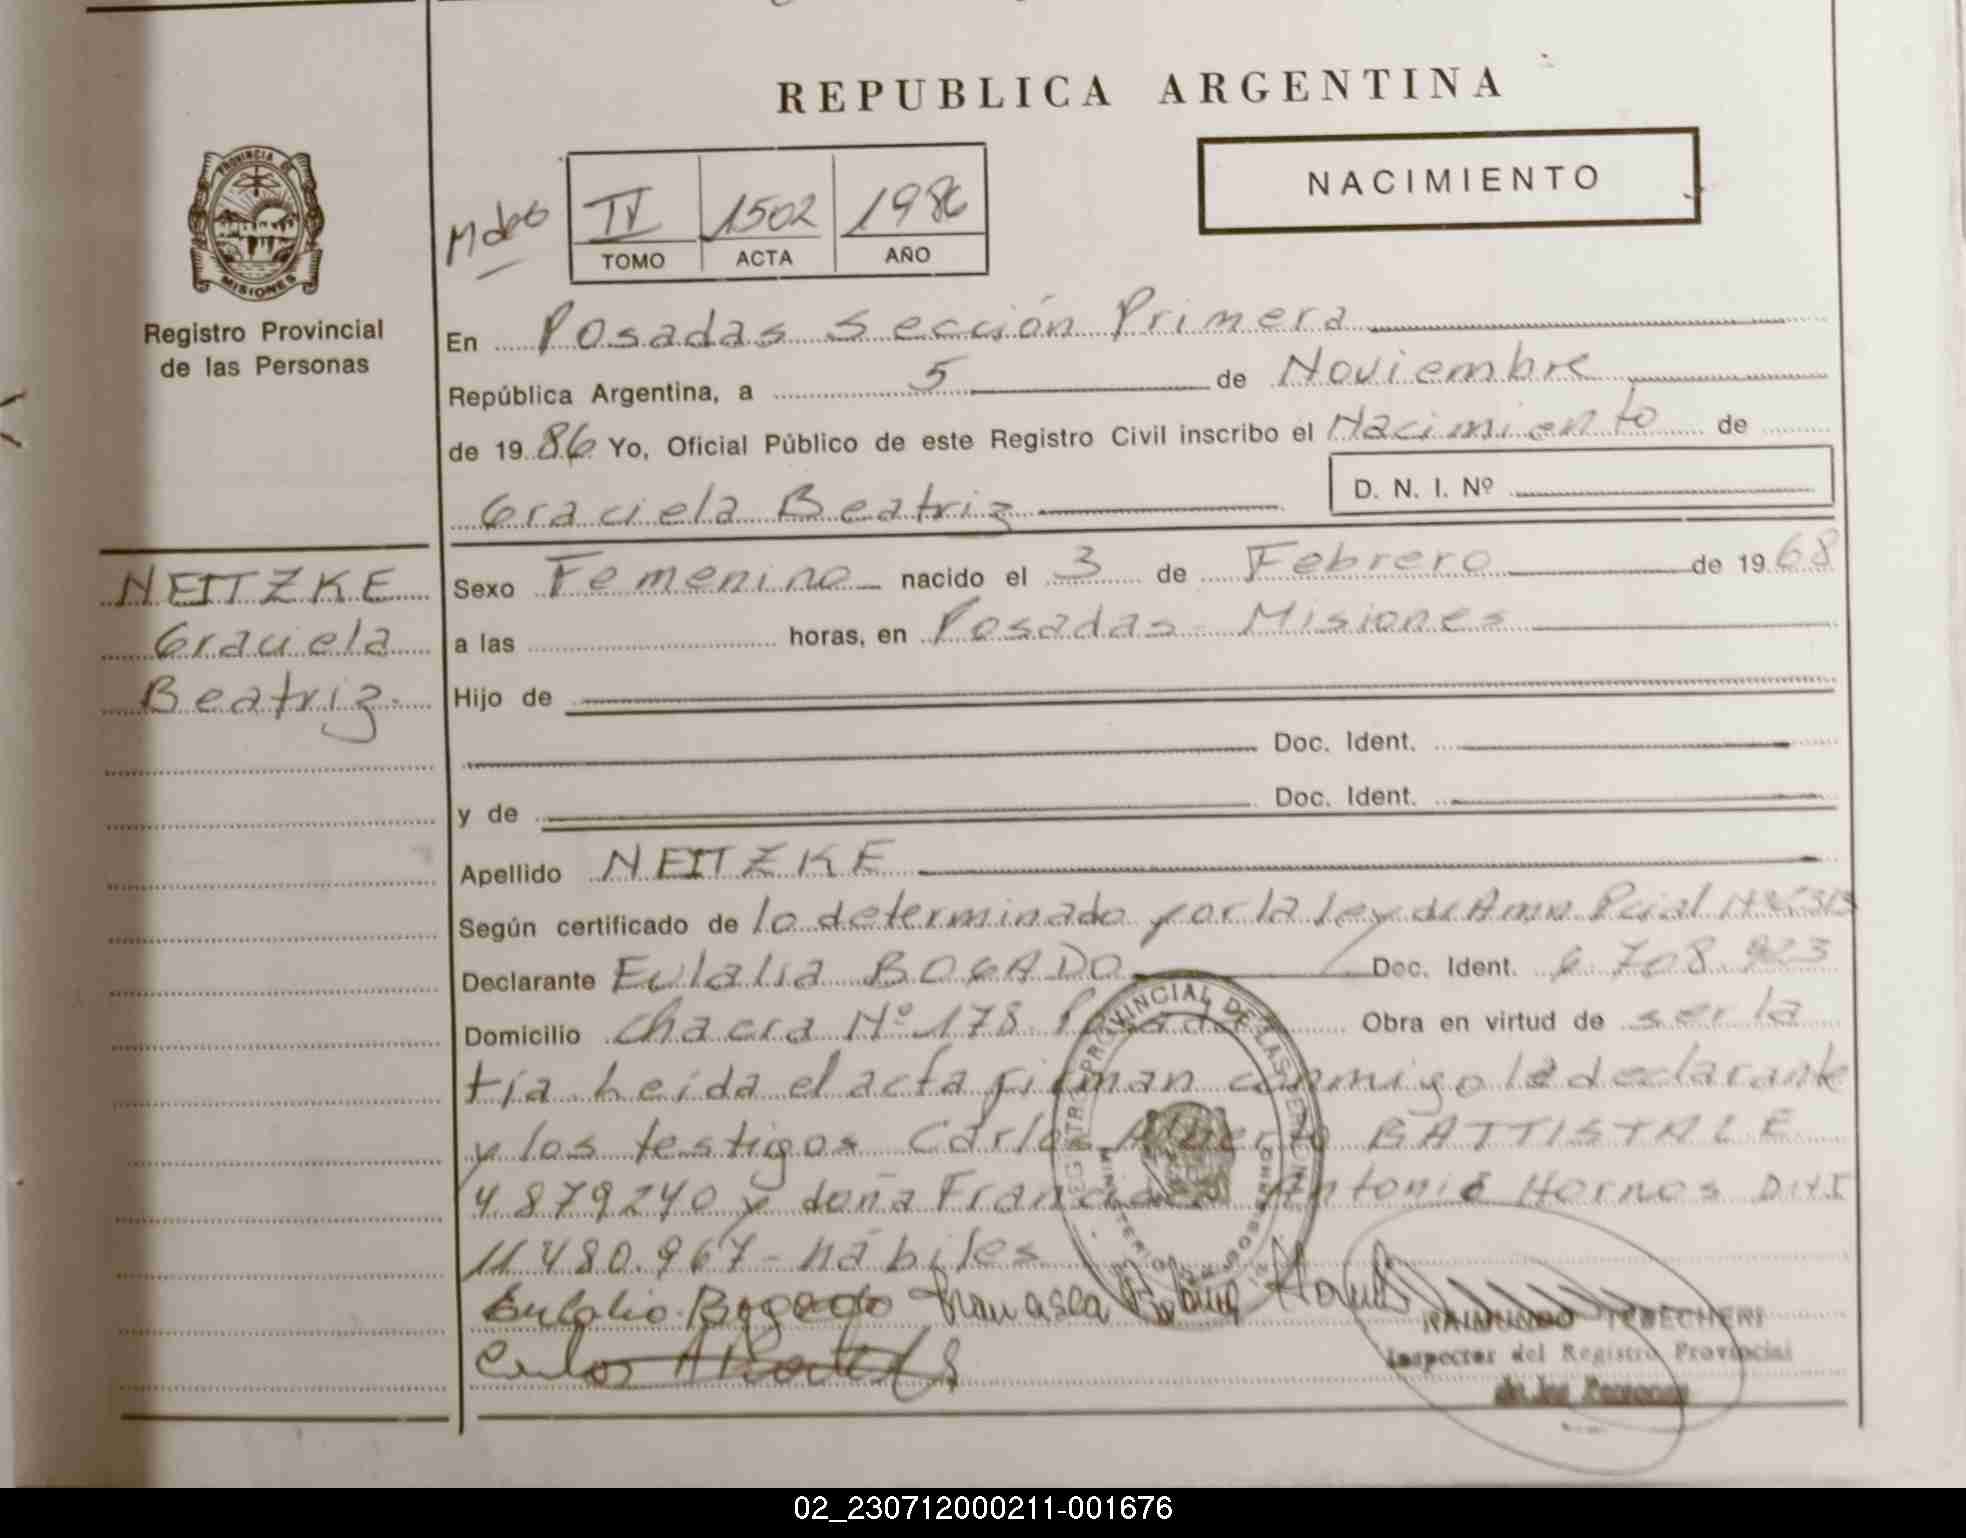 REPUBLICA ARGENTINA
PROVINCIA DE
MISIONES
Registro Provincial
de las Personas
IV 1502 1986
TOMO ACTA AÑO
NACIMIENTO
En Posadas Sección Primera
República Argentina, a 5 de Noviembre
de 1986 Yo, Oficial Público de este Registro Civil inscribo el Nacimiento de
Graciela Beatriz
D. N. I. Nº
NEITZKE
Graciela
Beatriz
Sexo Femenino nacido el 3 de Febrero de 1968
a las horas, en Posadas Misiones
Hijo de
Doc. Ident.
y de Doc. Ident.
Apellido NEITZKE
Según certificado de lo determinado por la ley de
Declarante Eulalia BOGADO Doc. Ident. 6.708.923
Domicilio Chacra Nº 178 Posadas Obra en virtud de ser la
tía. Leida el acta firman conmigo la declarante
y los testigos Carlos Alberto
4.879240 y doña Francisca Antonia Hornos DNI
11.480.967 - hábiles
Eulalia Bogado
Carlos
REGISTRO PROVINCIAL DE LAS PERSONAS
MINISTERIO DE GOBIERNO
RAIMUNDO TEBECHERI
Inspector del Registro Provincial
de las Personas
02_230712000211-001676